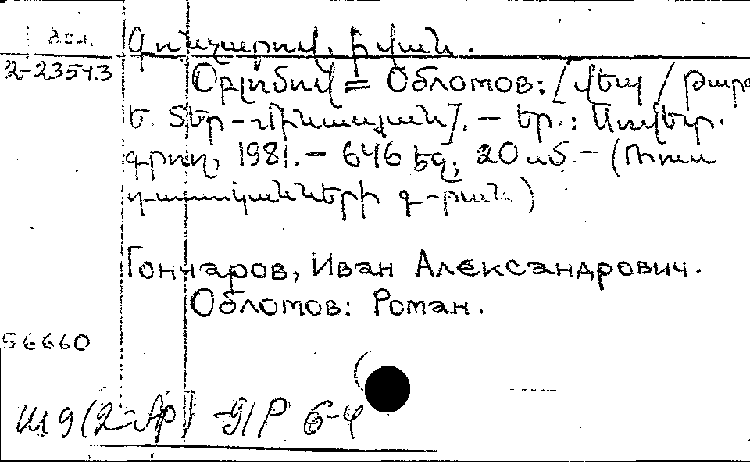 Գոնչարով, Իվան.
2-23543
Օբլոմով = Обломов: [Վեպ / Թարգ
Ե. Տեր-Մինասյան]. – Եր.: Սովետ.
գրող, 1981. – 646 էջ; 20 սմ. – (Ռուս
դասականների գ-րան)
Гончаров, Иван Александрович.
Обломов: Роман.
56660